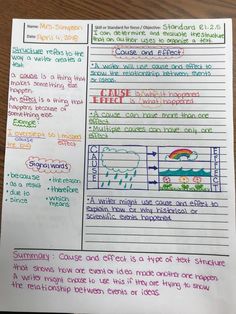 Name: Mrs. Simpson
Date: April 4, 2018
Skill or Standard for Focus / Objective: Standard RI.2.5
I can determine and evaluate the structure
that an author uses to organize a text.
Structure refers to the
way a writer creates a
text.
A cause is a thing that
makes something else
happen.
An effect is a thing that
happens because of
something else.
Example:
I overslept so I missed
the bus.
Signal words
• because
• as a result
• due to
• since
• the reason
• therefore
• which means
Cause and Effect!
• A writer will use cause and effect to
show the relationship between events or
ideas.
CAUSE is why it happened
EFFECT is what happened
• A cause can have more than one
effect.
• Multiple causes can have only one
effect.
CAUSE
EFFECT
• A writer might use cause and effect to
explain how or why historical or
scientific events happened.
Summary: Cause and effect is a type of text structure
that shows how one event or idea made another one happen.
A writer might choose to use this if they are trying to show
the relationship between events or ideas.